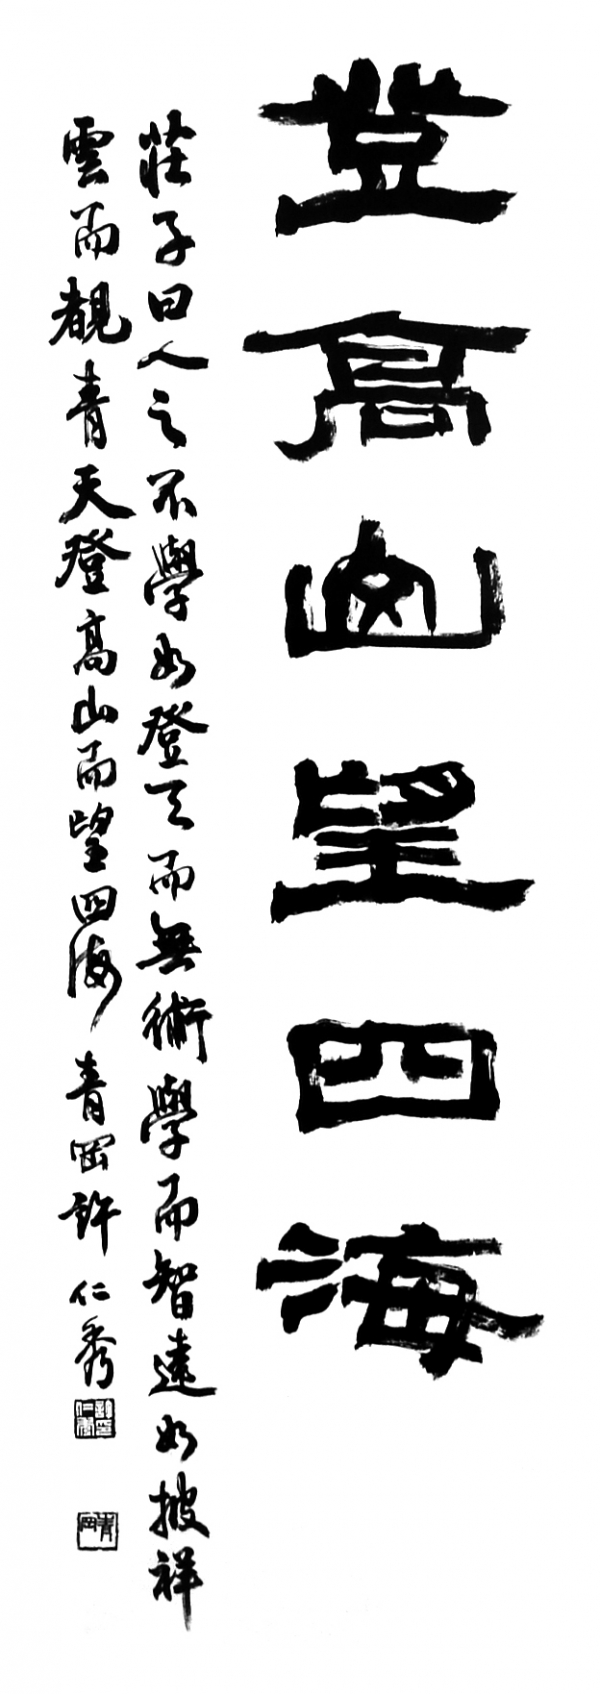 登高山望四海
莊子曰人之不學如登天而無術學而智遠如披祥
雲而覩青天登高山而望四海 青岡許仁秀
青岡